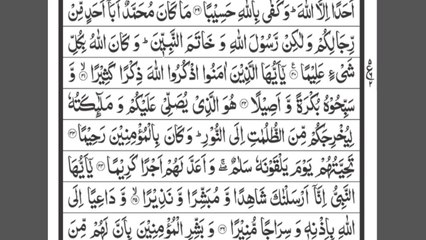 اَحَدًا اِلَّا اللّٰهَ ؕ وَ كَفٰی بِاللّٰهِ حَسِیْبًا ﴿۳۹﴾ مَا كَانَ مُحَمَّدٌ اَبَاۤ اَحَدٍ مِّنْ
رِّجَالِكُمْ وَ لٰكِنْ رَّسُوْلَ اللّٰهِ وَ خَاتَمَ النَّبِیّٖنَ ؕ وَ كَانَ اللّٰهُ بِكُلِّ
شَیْءٍ عَلِیْمًا ﴿۴۰﴾ یٰۤاَیُّهَا الَّذِیْنَ اٰمَنُوا اذْكُرُوا اللّٰهَ ذِكْرًا كَثِیْرًا ﴿۴۱﴾ وَّ
سَبِّحُوْهُ بُكْرَةً وَّ اَصِیْلًا ﴿۴۲﴾ هُوَ الَّذِیْ یُصَلِّیْ عَلَیْكُمْ وَ مَلٰٓىِٕكَتُهٗ
لِیُخْرِجَكُمْ مِّنَ الظُّلُمٰتِ اِلَی النُّوْرِ ؕ وَ كَانَ بِالْمُؤْمِنِیْنَ رَحِیْمًا ﴿۴۳﴾
تَحِیَّتُهُمْ یَوْمَ یَلْقَوْنَهٗ سَلٰمٌ ۚ وَ اَعَدَّ لَهُمْ اَجْرًا كَرِیْمًا ﴿۴۴﴾ یٰۤاَیُّهَا
النَّبِیُّ اِنَّاۤ اَرْسَلْنٰكَ شَاهِدًا وَّ مُبَشِّرًا وَّ نَذِیْرًا ﴿۴۵﴾ وَّ دَاعِیًا اِلَی
اللّٰهِ بِاِذْنِهٖ وَ سِرَاجًا مُّنِیْرًا ﴿۴۶﴾ وَ بَشِّرِ الْمُؤْمِنِیْنَ بِاَنَّ لَهُمْ مِّنَ